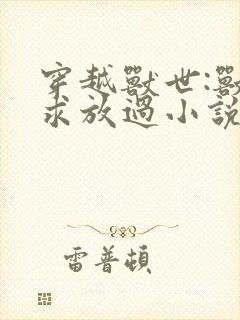 穿越獸世:獸
求放過小說
雷普頓